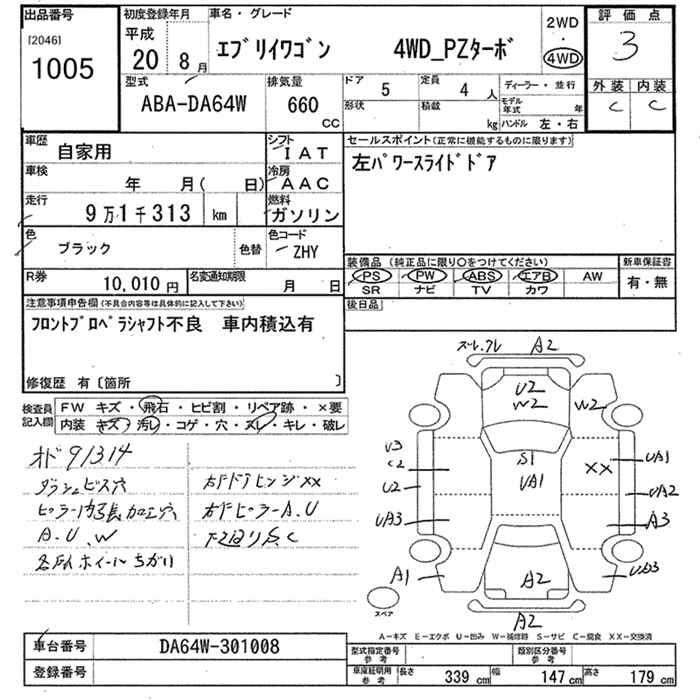 出品番号
[2046]
1005
初度登録年月
平成
20 8 月
車名・グレード
エブリイワゴン 4WD_PZターボ
2WD
・
4WD
評価点
3
外装 内装
C C
型式
ABA-DA64W
排気量
660
CC
ドア
5
定員
4 人
形状
積載
kg
ディーラー・並行
モデル年式 年
ハンドル 左・右
車歴
自家用
シフト
IAT
車検
年 月( 日)
冷房
AAC
走行
9万1千313 km
燃料
ガソリン
色
ブラック
色替
色コード
ZHY
R券
10,010 円
名変通知期限
月 日
セールスポイント(正常に機能するものに限ります)
左パワースライドドア
装備品(純正品に限り○をつけてください)
PS PW ABS エアB AW
SR ナビ TV カワ
新車保証書
有・無
後日品
注意事項申告欄(不具合内容等は具体的に記入して下さい)
フロントプロペラシャフト不良 車内積込有
修復歴 有〔箇所 〕
検査員
記入欄
FW キズ・飛石・ヒビ割・リペア跡・×要
内装 キズ・汚レ・コゲ・穴・スレ・キレ・破レ
オド91314
ダッシュビス穴
ピラー内張加工穴
A.U.W
各所ホイールちがい
右ドアヒンジXX
右Fピラー A.U
下廻りS.C
スレ.フレ A2
U2
W2
W2
U3
C2
U2
UA3
A1
S1
UA1
XX
UA1
UA2
A3
UA3
A2
A2
スペア
A-キズ E-エクボ U-凹み W-補修跡 S-サビ C-腐食 XX-交換済
車台番号
DA64W-301008
登録番号
型式指定番号
参考
類別区分番号
参考
車庫証明用
参考
長さ 339 cm 幅 147 cm 高さ 179 cm